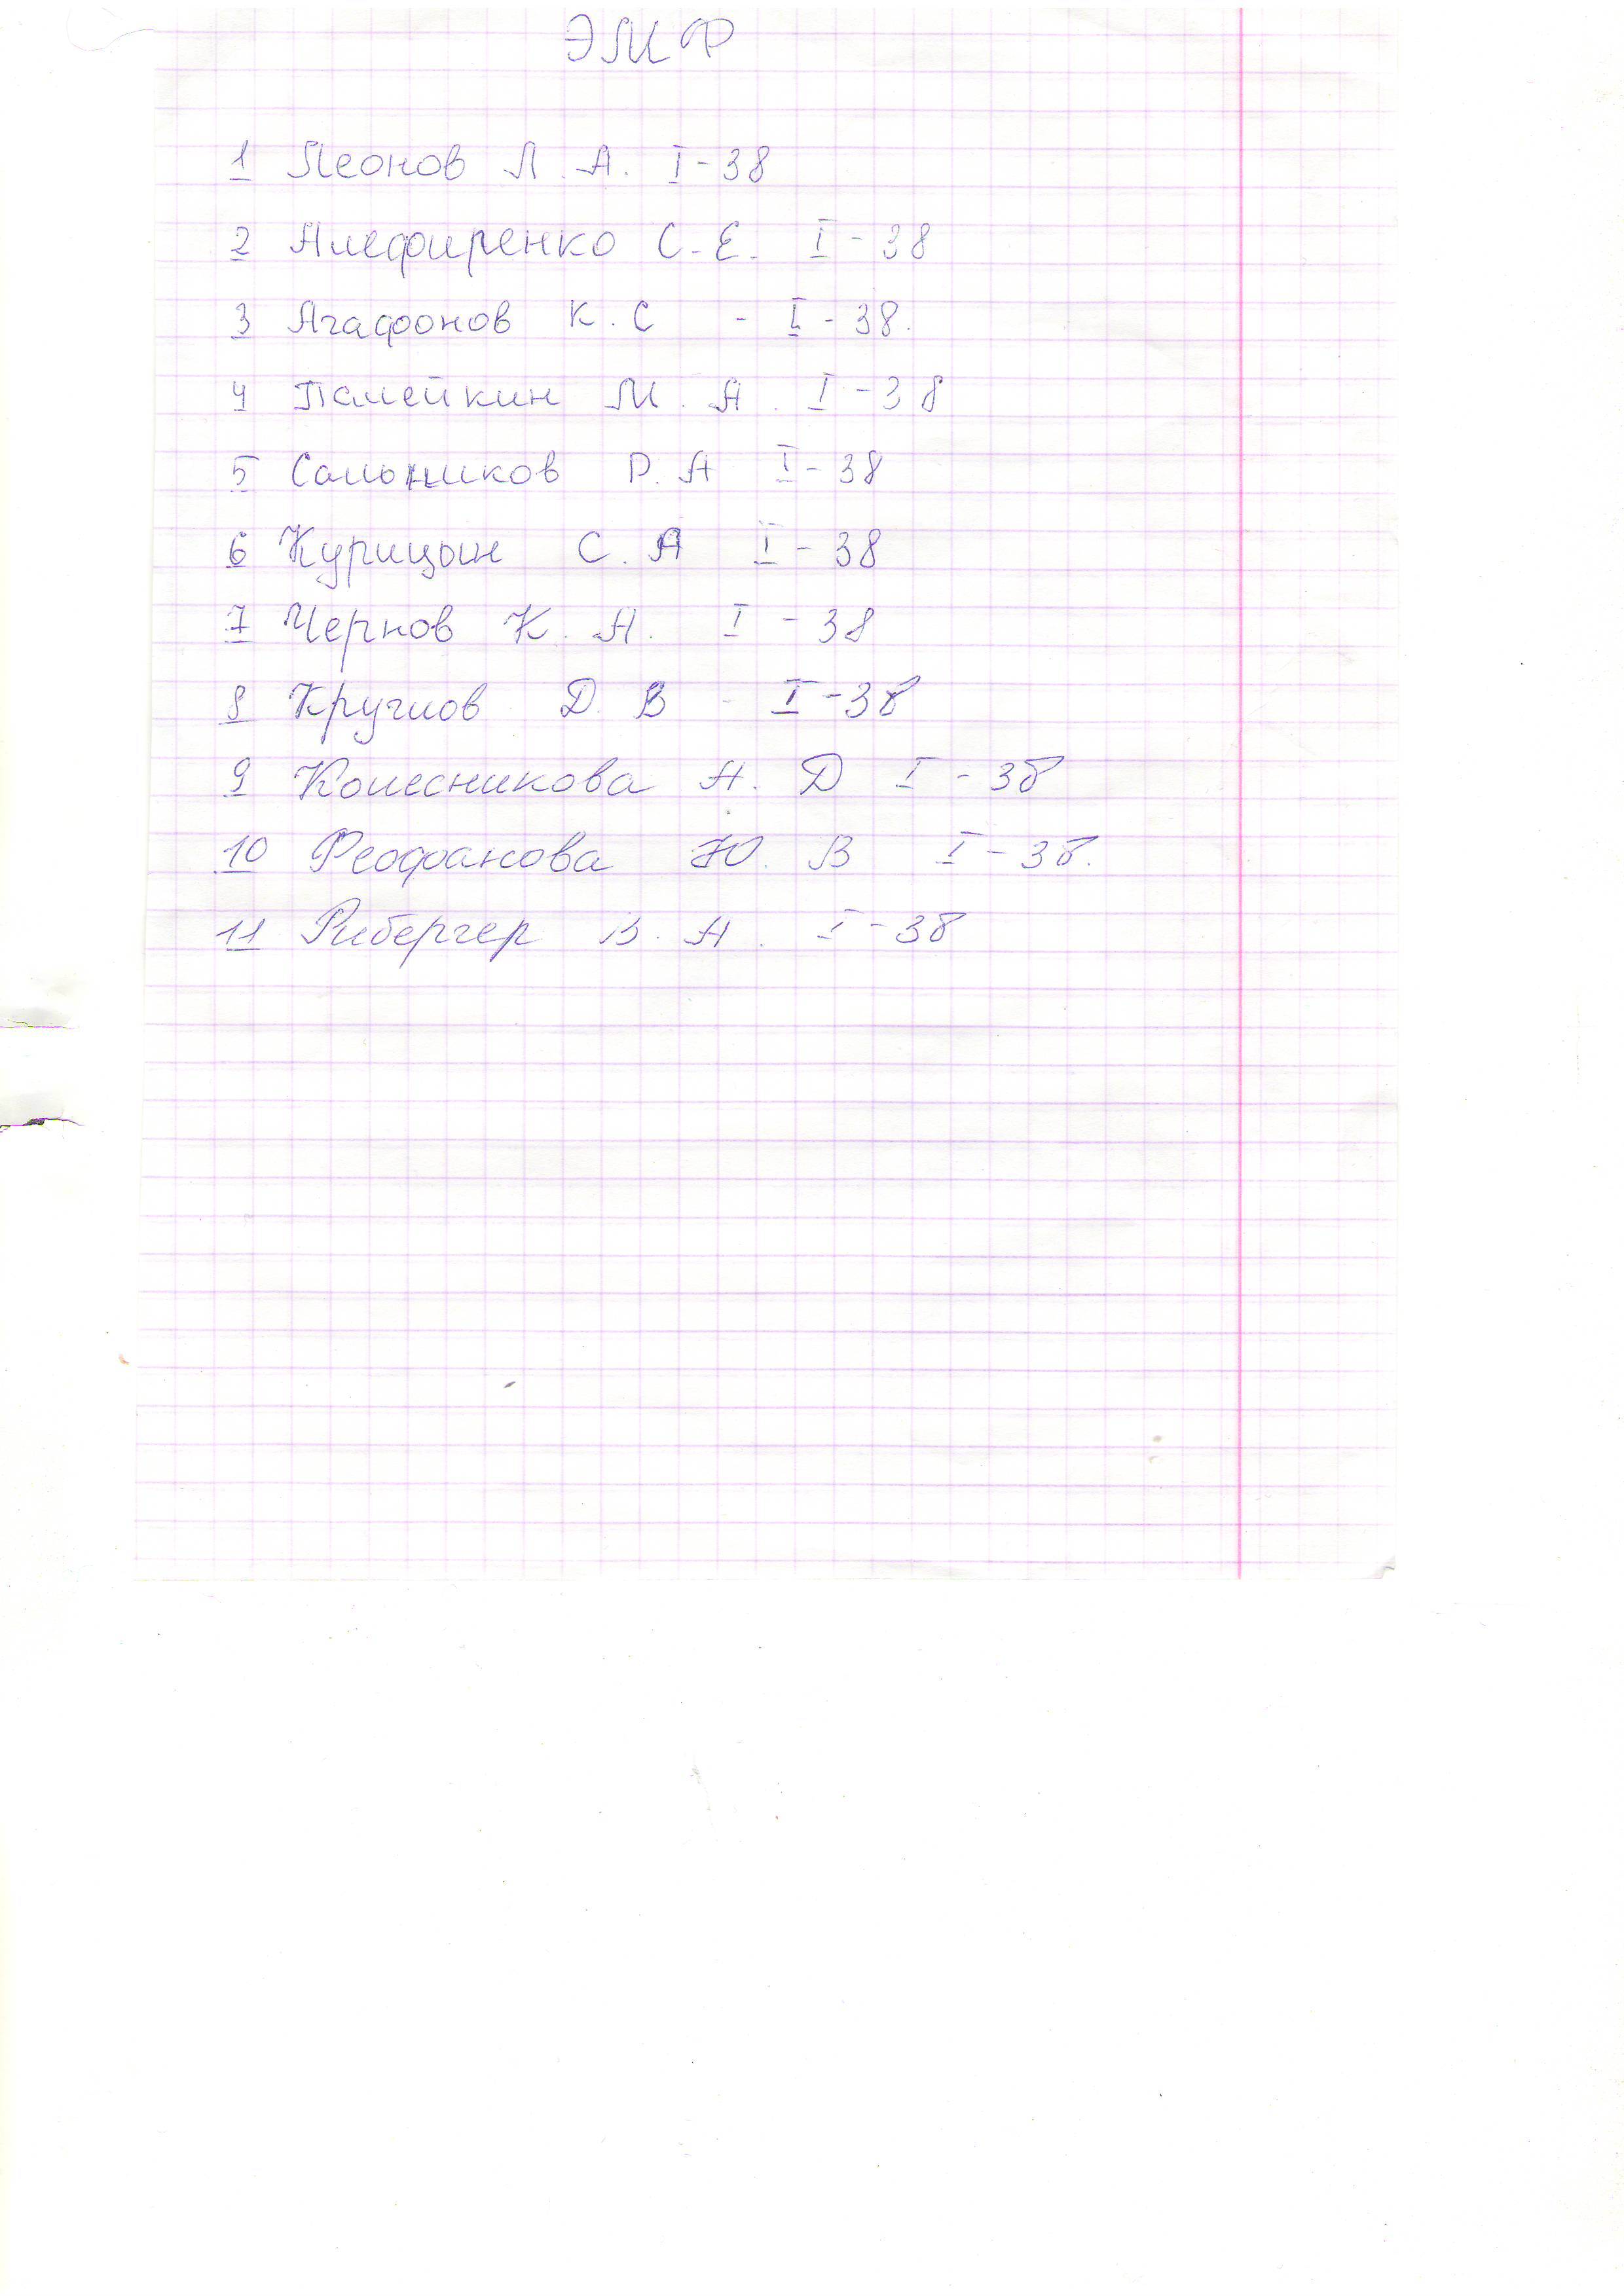 ЭМФ
1 Леонов Л. А. I-38
2 Алефиренко С.Е. I-38
3 Агафонов К.С - I-38.
4 Палейкин М.А. I-38
5 Сальников Р.А I-38
6 Курицын С.А I-38
7 Чернов К.А. I-38
8 Круглов Д.В - I-38
9 Колесникова А.Д I-38
10 Феофанова Ю.В I-38.
11 В.А. I-38